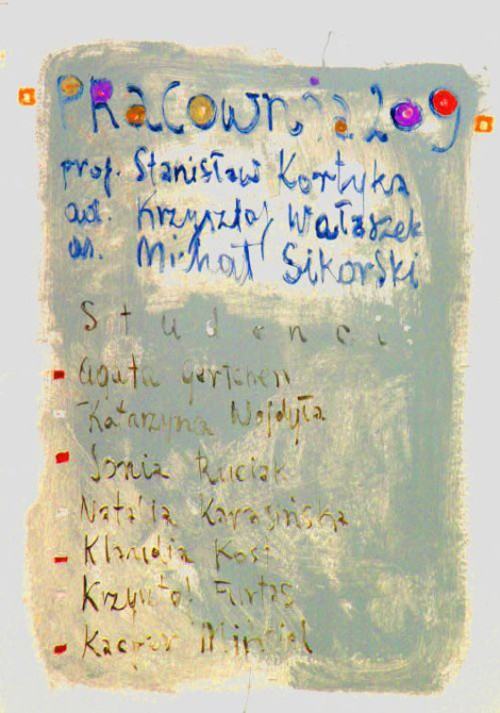 Pracownia 209
prof. Stanisław Kortyka
ad. Krzysztof Wałaszek
as. Michał Sikorski
Studenci
Agata Gertchen
Katarzyna Wojdyła
Sonia Ruciak
Natalia Karasińska
Klaudia Kost
Krzysztof Furtas
Kacper